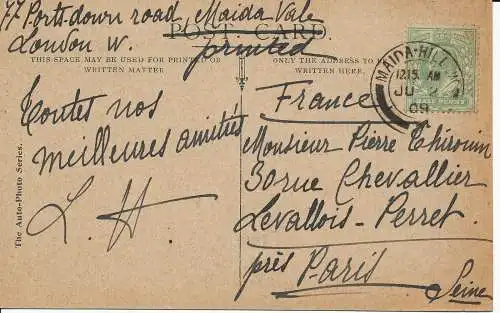 77 Ports-down road, Maida Vale
London W.
POST CARD.
printed
THIS SPACE MAY BE USED FOR PRINTED OR
WRITTEN MATTER
ONLY THE ADDRESS TO
WRITTEN HERE.
MAIDA-HILL
12.15 AM
JU
09
Toutes nos
meilleures amitiés
L. H
The Auto-Photo Series.
France
Monsieur Pierre Thirouin
30 rue Chevallier
Levallois-Perret
près Paris
Seine